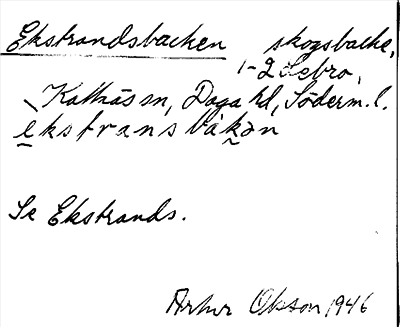 Ekstrandsbacken skogsbacke,
1-2 Lebro,
Kattnäs sn, Daga hd, Söderm. l.
ekstransbakən
Se Ekstrands.
Artur Olsson 1946